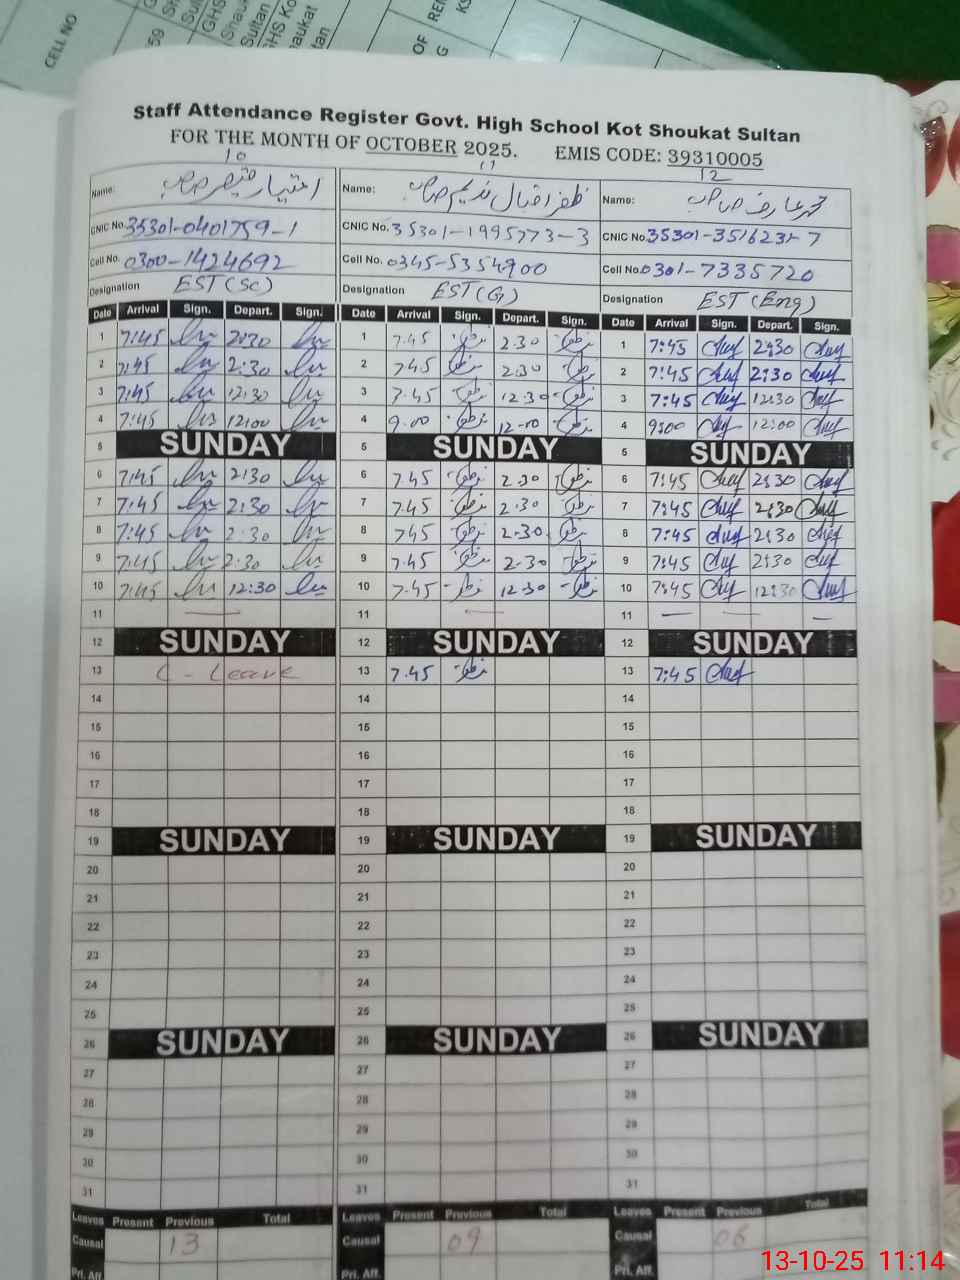 CELL NO
59
GHS
Sultan
GHS Ko
haukat
ltan
OF
REM
G
KS
Staff Attendance Register Govt. High School Kot Shoukat Sultan
FOR THE MONTH OF OCTOBER 2025. EMIS CODE: 39310005
10 11 12
Name: Name: ظفر اقبال ندیم صاحب Name: محمد عارف صاحب
CNIC No. 35301-0401759-1 CNIC No. 35301-1995773-3 CNIC No. 35301-3516231-7
Cell No. 0300-1424692 Cell No. 0345-5354900 Cell No. 0301-7335720
Designation EST (Sc) Designation EST (G) Designation EST (Eng)
Date Arrival Sign. Depart. Sign. Date Arrival Sign. Depart. Sign. Date Arrival Sign. Depart. Sign.
1 7:45 2:30 1 7.45 2.30 1 7:45 2:30
2 7:45 2:30 2 7.45 2.30 2 7:45 2:30
3 7:45 12:30 3 7.45 12.30 3 7:45 12:30
4 7:45 12:00 4 9.00 12-00 4 9:00 12:00
5 SUNDAY 5 SUNDAY 5 SUNDAY
6 7:45 2:30 6 7.45 2.30 6 7:45 2:30
7 7:45 2:30 7 7.45 2.30 7 7:45 2:30
8 7:45 2:30 8 7.45 2.30 8 7:45 2:30
9 7:45 2:30 9 7.45 2.30 9 7:45 2:30
10 7:45 12:30 10 7.45 12.30 10 7:45 12:30
11 — 11 — 11 — — —
12 SUNDAY 12 SUNDAY 12 SUNDAY
13 C - Leave 13 7.45 13 7:45
14 14 14
15 15 15
16 16 16
17 17 17
18 18 18
19 SUNDAY 19 SUNDAY 19 SUNDAY
20 20 20
21 21 21
22 22 22
23 23 23
24 24 24
25 25 25
26 SUNDAY 26 SUNDAY 26 SUNDAY
27 27 27
28 28 28
29 29 29
30 30 30
31 31 31
Leaves Present Previous Total Leaves Present Previous Total Leaves Present Previous Total
Causal 13 Causal 09 Causal 06
Pri. Aff. Pri. Aff. Pri. Aff.
13-10-25 11:14